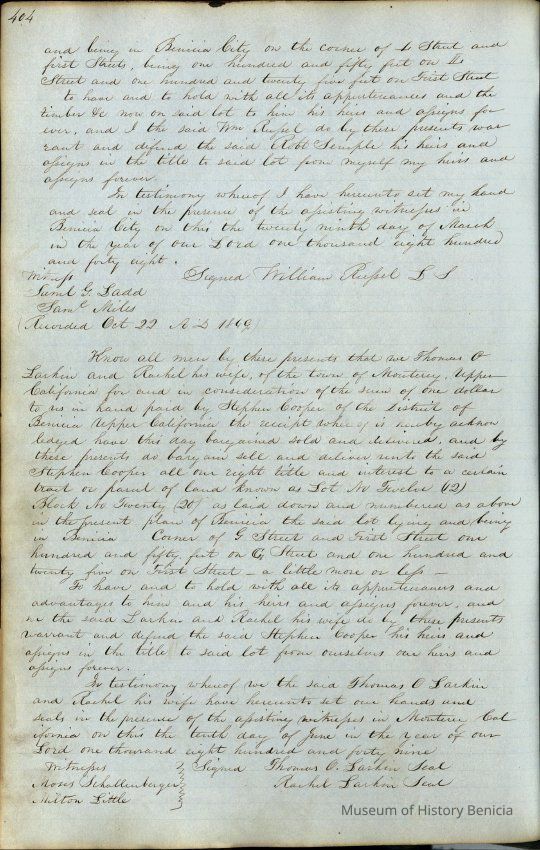 404
and being in Benicia City on the corner of D Street and
first Streets, being one hundred and fifty feet on D
Street and one hundred and twenty five feet on First Street
to have and to hold with all its appurtenances and the
timber &c now on said lot to him his heirs and assigns for
ever, and I the said Wm Russel do by these presents war
rant and defend the said Robt Semple his heirs and
assigns in the title to said lot from myself my heirs and
assigns forever.
In testimony whereof I have hereunto set my hand
and seal in the presence of the assisting witnesses in
Benicia City on this the twenty ninth day of March
in the year of our Lord one thousand eight hundred
and forty eight.
Witness Signed William Russel L S
Saml G. Ladd
Saml Miles
(Recorded Oct 22 A D 1849)
Know all men by these presents that we Thomas O
Larkin and Rachel his wife, of the town of Monterey, Upper
California for and in consideration of the sum of one dollar
to us in hand paid by Stephen Cooper of the District of
Benicia Upper California the receipt whereof is hereby acknow
ledged have this day bargained sold and delivered, and by
these presents do bargain sell and deliver unto the said
Stephen Cooper all our right title and interest to a certain
tract or parcel of land known as Lot No Twelve (12)
Block No Twenty (20) as laid down and numbered as above
in the present plan of Benicia the said lot lying and being
in Benicia Corner of G Street and First Street one
hundred and fifty feet on G Street and one hundred and
twenty five on First Street – a little more or less –
To have and to hold with all its appurtenances and
advantages to him and his heirs and assigns forever, and
we the said Larkin and Rachel his wife do by these presents
warrant and defend the said Stephen Cooper his heirs and
assigns in the title to said lot from ourselves our heirs and
assigns forever.
In testimony whereof we the said Thomas O Larkin
and Rachel his wife have hereunto set our hands and
seals in the presence of the assisting witnesses in Monterey Cal
ifornia on this the tenth day of June in the year of our
Lord one thousand eight hundred and forty nine
Witnesses Signed Thomas O. Larkin Seal
Moses Schallenberger Rachel Larkin Seal
Milton Little
Museum of History Benicia